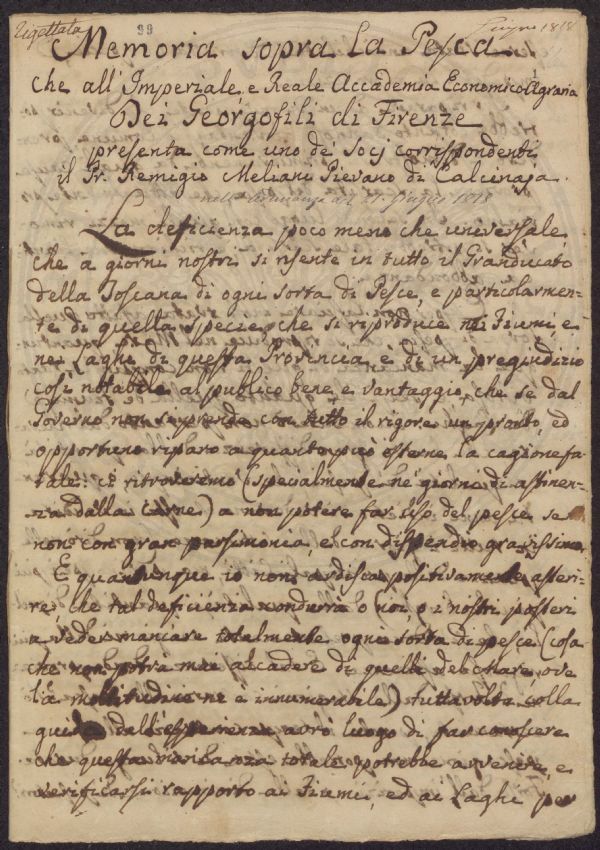 Rigettata
99
Giugno 1818
Memoria sopra la Pesca
che all'Imperiale e Reale Accademia Economico Agraria
Dei Georgofili di Firenze
presenta come uno de' Socj corrispondenti
il Pr. Remigio Meliani Pievano di Calcinaja.
nell'Adunanza del Giugno 1818
La deficienza poco meno che universale,
che a giorni nostri si risente in tutto il Granducato
della Toscana di ogni sorta di Pesce, e particolarmen-
te di quella specie, che si riproduce ne' Fiumi, e
ne' Laghi di questa Provincia, è di un pregiudizio
così notabile al publico bene, e vantaggio, che se dal
Governo non si prende con tutto il rigore un pronto, ed
opportuno riparo a quanto può esserne la cagione fa-
tale: ci ritroveremo (specialmente ne' giorni di astinen-
za dalla Carne) a non potere far uso del pesce se
non con gran parsimonia, e con dispendio gravissimo.
E quantunque io non ardisca positivamente asseri-
re, che tal deficienza condurrà o noi, o i nostri posteri
a veder mancare totalmente ogni sorta di pesce (cosa
che non potrà mai accadere di quelli del mare, ove
la moltitudine ne è innumerabile) tuttavolta colla
guida dall'esperienza avrò luogo di far conoscere
che questa mancanza totale potrebbe avvenire, e
verificarsi rapporto ai Fiumi, ed ai Laghi per